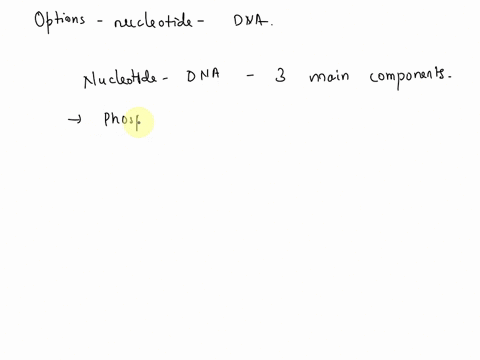 Options - nucleotide - DNA.
Nucleotide - DNA - 3 main components.
→ Phosp